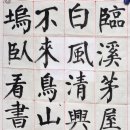 臨溪茅屋
白風清興
不來山鳥
塢臥看書